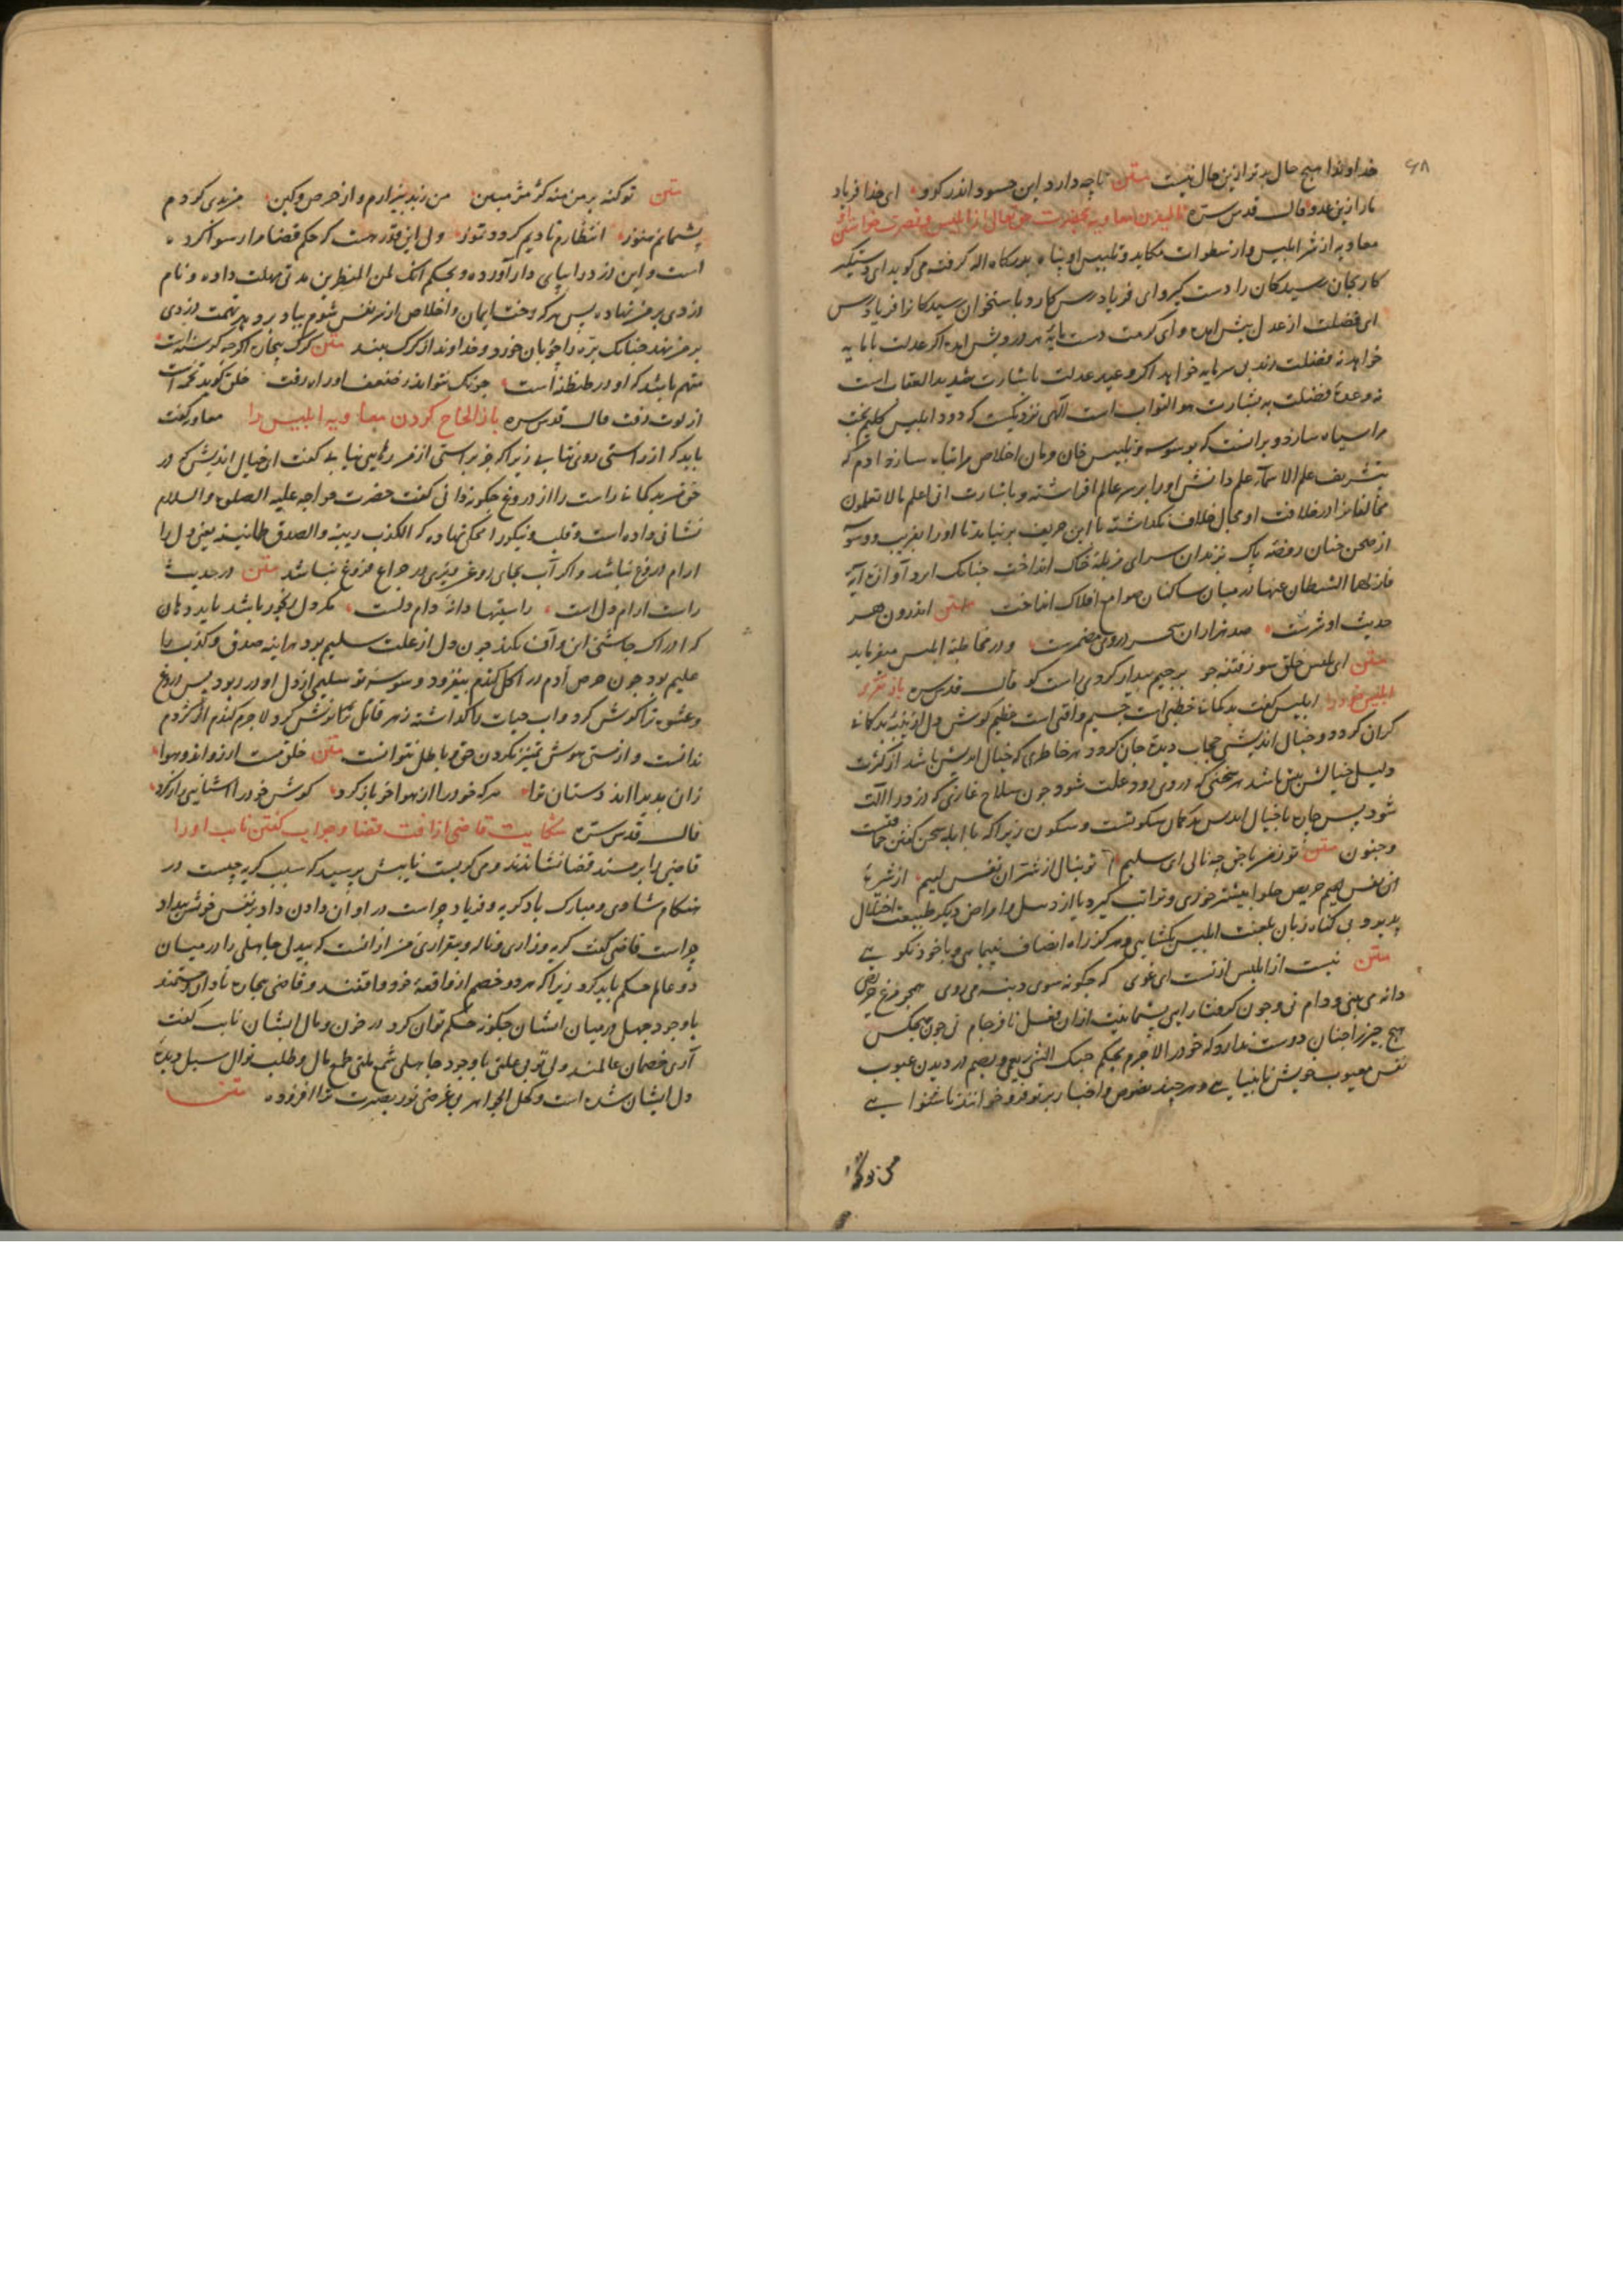 ۶۸
خداوندا هیچ حال بدتر ازین حال نیست متن تا چه دارد این حسود اندر کدو ای خدا فریاد
ما را زین عدو قال قدس سره نالیدن معاویه بحضرت حق تعالی از ابلیس و نصرت خواستن
معاویه از شر ابلیس و از سطوات مکاید و تلبیس او پناه بدرگاه اله گرفته می گوید ای دستگیر
کار بجان رسیدگان را دست گیر و ای فریادرس کارد باستخوان رسیدگانرا فریاد رس
ای فضلت از عدل بیش آمده و ای کرمت دست مایه هر درویش آمده اگر عدلت با ما به
خواهد نه فضلت زند بی سرمایه خواهد اگر وعید عدلت باشارت شدید العقاب است
نه وعده فضلت به بشارت هو التواب است الهی نزدیکست که دود ابلیس گلیم بخت
مرا سیاه سازد و برانست که بوسوسه و تلبیس خان و مان اخلاص مرا تباه سازد آدم که
بتشریف علم الاسماء علم دانش او را بر سر عالم افراشته و باشارت انی اعلم ما لا تعلمون
مخالفانرا در خلافت او مجال خلاف نگذاشته با این حریف برنیامد تا او را بفریب و وسوسه
از صحن جنان روضه پاک بزندان سرای مزبله خاک انداخت چنانک امد آوازه آیه
فازلهما الشیطان عنها در میان ساکنان صوامع افلاک انداخت متن اندرون هر
حدیث او شرست صد هزاران سحر در وی مضمرست و در مخاطبه ابلیس میفرماید
متن ای بلیس خلق سوز فتنه جو بر چیم بیدار کردی راست گو قال قدس سره باز تقریر
ابلیس خود را ابلیس گفت بد گمانی خطبی است جسیم و آفتی است عظیم گوش دل از پنبه بدگمانی
گران گردد و خیال اندیشی حجاب دیده جان گردد هر خاطری که خیال اندیش باشد از کثرت
دلیل خیالش بیش باشد هر سخنی که در وی رود علت شود چون سلاح غازی که دزد را آلت
شود پس جان با خیال اندیش بدگمان سکوتست و سکون زیرا که با ابله سخن گفتن حماقتست
و جنون متن تو ز من با حق چه نالی ای سلیم تو بنال از شر آن نفس لئیم از شره
آن نفس لئیم حریص حلوا بیشتر خوری و ترا تب گیرد یا از دمل و امراض دیگر طبیعت اختلال
پذیرد و بی گناه زبان بلعنت ابلیس بگشایی و هرگز راه انصاف نپیمایی و با خود نگویی
متن نیست از ابلیس از تست ای غوی که چگونه سوی دنبه می روی همچو مرغ حریص
دانه می بینی و دام نی و چون گرفتار ایی پشیمانیت ازان فعل نافرجام نی چون هیچکس
هیچ چیز را چنان دوست ندارد که خود را لاجرم بحکم حبک الشئ یعمی و یصم در دیدن عیوب
نفس معیوب خویش نابینایی و هر چند نصوص و اخبار بر تو فرو خوانند ناشنوایی
متن تو گنه بر من منه کژ مژ مبین من ز بد بیزارم و از حرص و کین من بدی کردم
پشیمانم هنوز انتظارم تا دیم گردد تموز ولی این قدر هست که حکم قضا مرا رسوا کرده
است و این دزد را بپای دار آورده و بحکم انک لمن المنظرین مدتی مهلت داده و نام
دزدی بر من نهاده پس هر که رخت ایمان و اخلاص از شر نفس شوم بباد بردهد تهمت دزدی
بر من نهد چنانک بره را چوپان خورد و خداوند از گرگ بیند متن گرگ بیچاره اگرچه گرسنه است
متهم باشد که او در طنطنه است چونک نتواند ز ضعف او راه رفت خلق گوید تخمه است
از لوت زفت قال قدس سره باز الحاح کردن معاویه ابلیس را معاویه گفت
باید که از راستی روی نتابی زیرا که جز براستی از من رهایی نیابی گفت ای خیال اندیش کج در
حق من بدگمان راست را از دروغ چگونه دانی گفت حضرت خواجه علیه الصلوة و السلام
نشانی داده است و قلب و نیکو را محک نهاده که الکذب ریبة و الصدق طمانینة یعنی دل را
آرام دروغ نباشد و اگر آب بجای روغن ریزی در چراغ فروغ نباشد متن در حدیث
راست آرام دل است راستیها دانه دام دلست مگر دل رنجور باشد باید دهان
که ادراک چاشنی این و آن نکند چون دل از علت سلیم بود هراینه صدق و کذب را
علیم بود چون حرص آدم در اکل گندم بیفزود وسوسه تو سلیمی از دل او در ربود پس دروغ
و عشوه ترا گوش کرد و آب حیات را گذاشته زهر قاتل ترا نوش کرد لاجرم گندم از کژدم
ندانست و از مستی هوش تمیز کردن حق و باطل نتوانست متن خلق مست آرزو اند و هوا
زان پذیرا اند دستان ترا هر که خود را از هوا خو باز کرد گوش خود را آشنای راز کرد
قال قدس سره شکایت قاضی از آفت قضا و جواب گفتن نایب او را
قاضی را بر مسند قضا نشاندند و می گریست نایبش پرسید که سبب گریه چیست در
هنگام شادی و مبارک باد گریه و فریاد چراست در اوان دادن داد بر نفس خویش بیداد
چراست قاضی گفت گریه و زاری و ناله و بیقراری من از انست که بیدلی جاهلی را در میان
دو عالم حکم باید کرد زیرا که هر دو خصم از واقعه خود واقفند و قاضی بیچاره نادان مستمند
با وجود جهل در میان ایشان چگونه حکم توان کرد در خون و مال ایشان نایب گفت
آری خصمان عالمند ولی تو بی علتی با وجود جاهلی شمع ملتی طمع مال و طلب نوال سبل دیده
دل ایشان شده است و کحل الجواهر بی غرضی نور بصیرت ترا افزوده متن